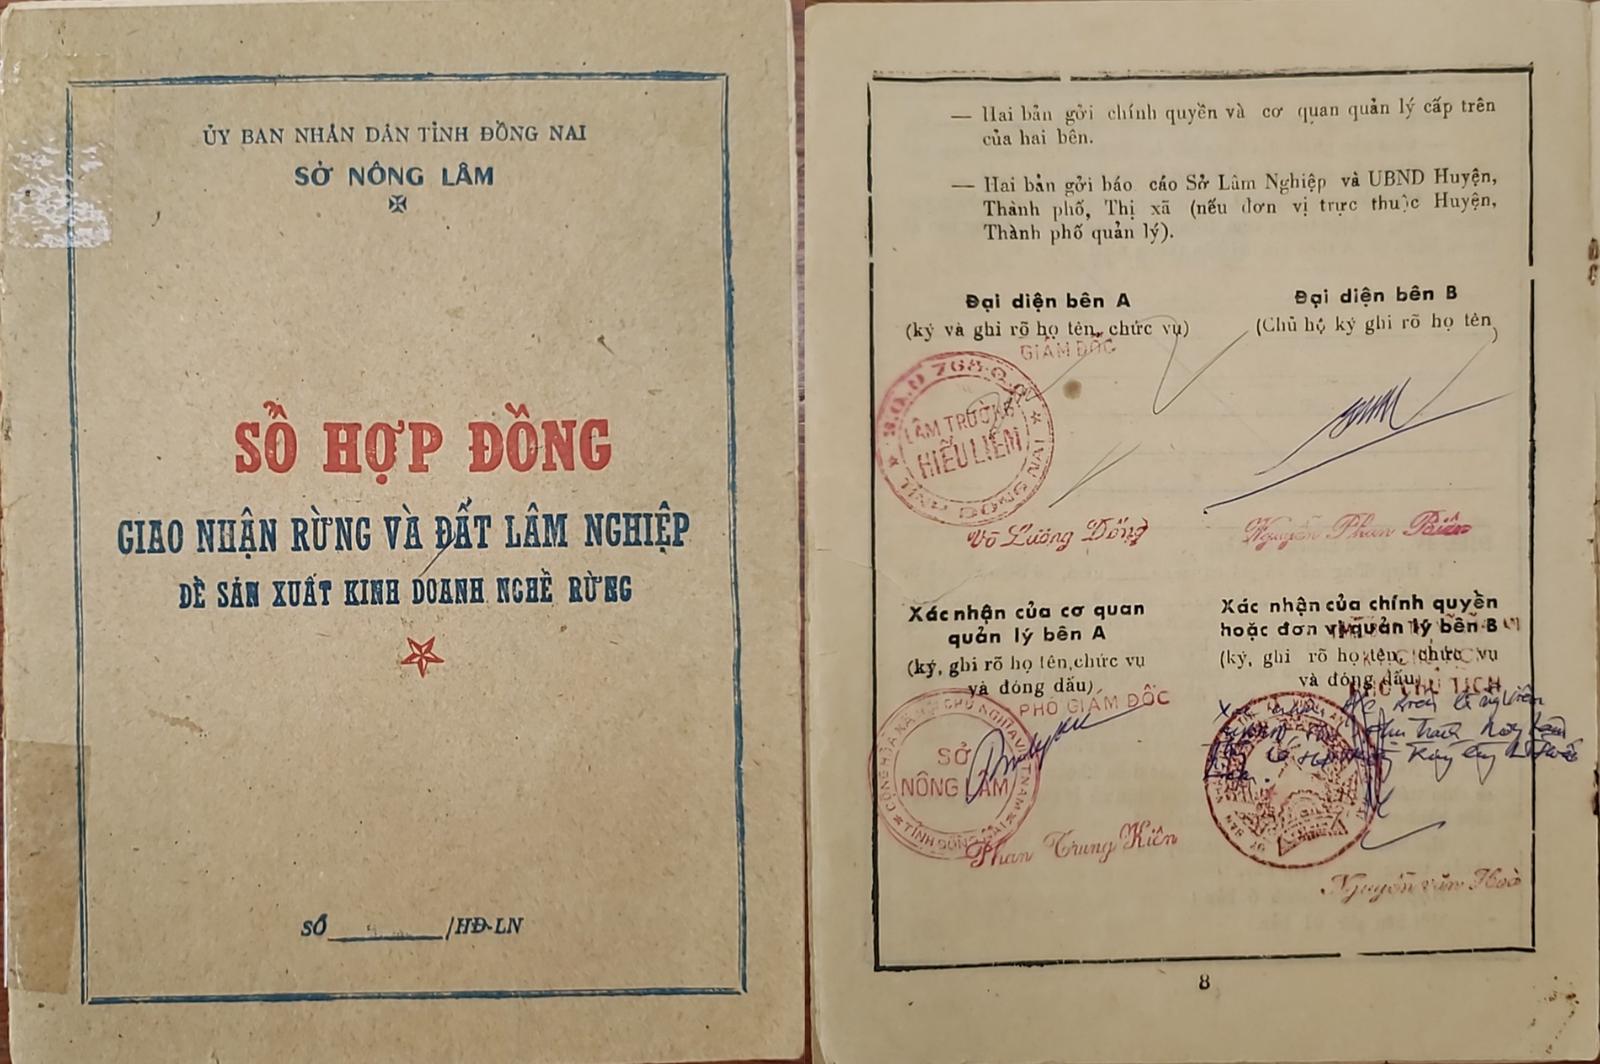 ỦY BAN NHÂN DÂN TỈNH ĐỒNG NAI
SỞ NÔNG LÂM
SỔ HỢP ĐỒNG
GIAO NHẬN RỪNG VÀ ĐẤT LÂM NGHIỆP
ĐỀ SẢN XUẤT KINH DOANH NGHỀ RỪNG
SỐ /HĐ-LN
— Hai bản gởi chính quyền và cơ quan quản lý cấp trên
của hai bên.
— Hai bản gởi báo cáo Sở Lâm Nghiệp và UBND Huyện,
Thành phố, Thị xã (nếu đơn vị trực thuộc Huyện,
Thành phố quản lý).
Đại diện bên A
(ký và ghi rõ họ tên, chức vụ)
GIÁM ĐỐC
LÂM TRƯỜNG
HIẾU LIÊM
Võ Lương Dống
Đại diện bên B
(Chủ hộ ký ghi rõ họ tên)
Nguyễn Phan
Xác nhận của cơ quan
quản lý bên A
(ký, ghi rõ họ tên, chức vụ
và đóng dấu)
PHÓ GIÁM ĐỐC
CỘNG HÒA XÃ HỘI CHỦ NGHĨA VIỆT NAM
SỞ
NÔNG LÂM
TỈNH ĐỒNG NAI
Phan Trung Kiên
Xác nhận của chính quyền
hoặc đơn vị quản lý bên B
(ký, ghi rõ họ tên, chức vụ
và đóng dấu)
PHÓ CHỦ TỊCH
Nguyễn văn Hoà
8